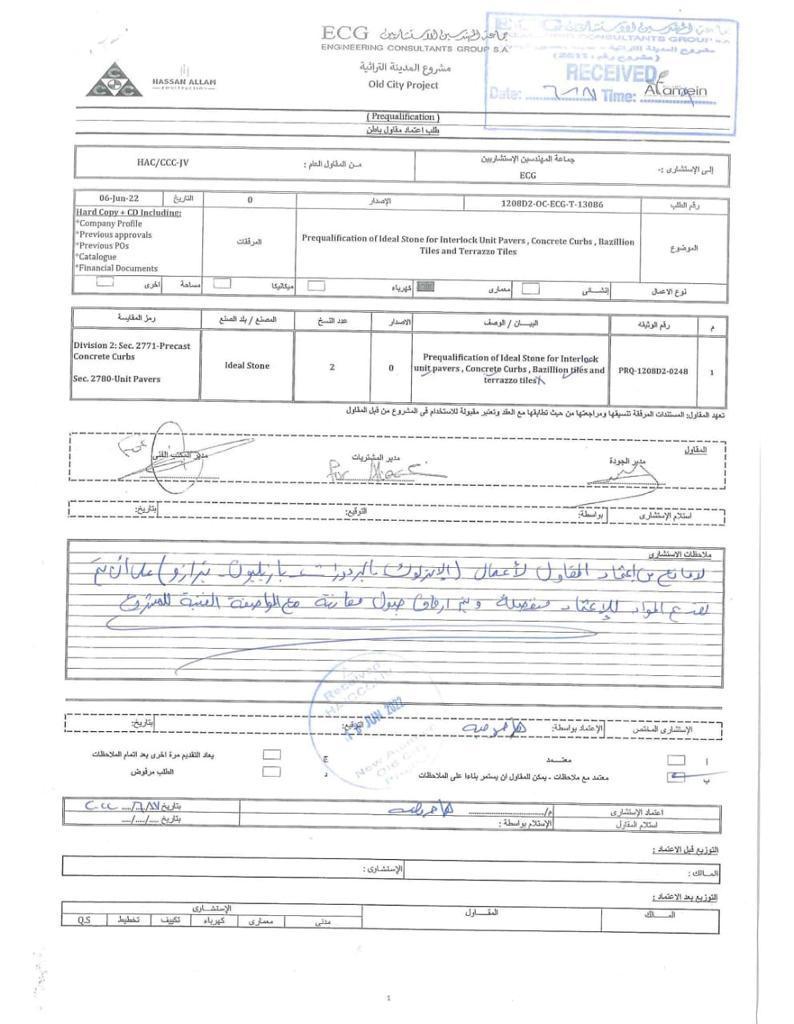 ECG جماعة المهندسين الاستشاريين
ENGINEERING CONSULTANTS GROUP S.A
مشروع المدينة التراثية
Old City Project
CCC
HASSAN ALLAM
CONSTRUCTION
جماعة المهندسين الاستشاريين ECG
CONSULTANTS GROUP S.A
RECEIVED
Date: Time:
Alamein
( Prequalification )
طلب اعتماد مقاول باطن
إلى الإستشارى :- جماعة المهندسين الإستشاريين
ECG
من المقاول العام : HAC/CCC-JV
رقم الطلب 1208D2-OC-ECG-T-13086 الإصدار 0 التاريخ 06-Jun-22
الموضوع Prequalification of Ideal Stone for Interlock Unit Pavers , Concrete Curbs , Bazillion
Tiles and Terrazzo Tiles
المرفقات Hard Copy + CD Including:
*Company Profile
*Previous approvals
*Previous POs
*Catalogue
*Financial Documents
نوع الاعمال إنشائى معمارى كهرباء ميكانيكا مساحة اخرى
م رقم الوثيقه البيــان / الوصف الاصدار عدد النسخ المصنع / بلد الصنع رمز المقايسة
1 PRQ-1208D2-0248 Prequalification of Ideal Stone for Interlock
unit pavers , Concrete Curbs , Bazillion tiles and
terrazzo tiles 0 2 Ideal Stone Division 2: Sec. 2771-Precast
Concrete Curbs
Sec. 2780-Unit Pavers
تعهد المقاول: المستندات المرفقة تم تنسيقها ومراجعتها من حيث تطابقها مع العقد وتعتبر مقبولة للاستخدام في المشروع من قبل المقاول
المقاول
مدير الجودة مدير المشتريات مدير المكتب الفنى
For
for
استلام الإستشارى بواسطة: التوقيع: بتاريخ:
ملاحظات الاستشارى
لا مانع من اعتماد المقاول لأعمال (الإنترلوك - البردورات - بازيليون - تيرازو) على أن يتم
تقديم المواد للإعتماد منفصلة ويتم ارفاق جدول مقارنة مع المواصفة الفنية للمشروع
Received
JUN 2022
New Alamein
Old City
الإستشارى المختص الإعتماد بواسطة: التوقيع: بتاريخ:
ا معتــمد ج يعاد التقديم مرة اخرى بعد اتمام الملاحظات
ب معتمد مع ملاحظات - يمكن للمقاول ان يستمر بناءا على الملاحظات د الطلب مرفوض
اعتماد الإستشارى م/ بتاريخ
استلام المقاول الإستلام بواسطة : بتاريخ ..../..../....
التوزيع قبل الاعتماد :
المــالك : الإستشارى :
التوزيع بعد الاعتماد :
المــالك المقــاول الإستشارى
مدنى معمارى كهرباء تكييف تخطيط Q.S
1